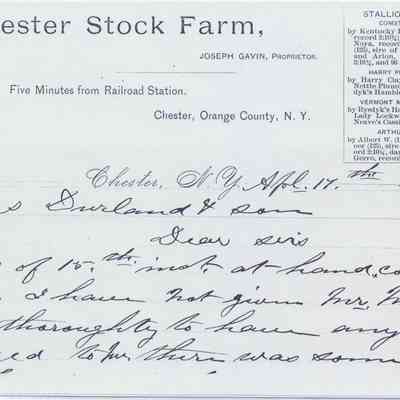 ester Stock Farm,
JOSEPH GAVIN, PROPRIETOR.
Five Minutes from Railroad Station.
Chester, Orange County, N. Y.
STALLIO
COMST
by Kentucky P
record 2:10¼;
Noya, record
(125), sire of
and Arion,
2:10¼, and 96
HARRY P
by Harry Cla
Nettie Plume
dyk's Hamble
VERMONT
by Rysdyk's Ha
Lady Lockw
Neave's Cassi
ARTHU
by Albert W. (
oor (125), sire
ord 2:10¼, da
Gerro, record
Chester, N.Y. Apl. 17.th
s Durland & son
Dear sirs
of 15.th inst. at hand, co
I have not given Mr. M
thoroughty to have any
ed to Mr. there was som